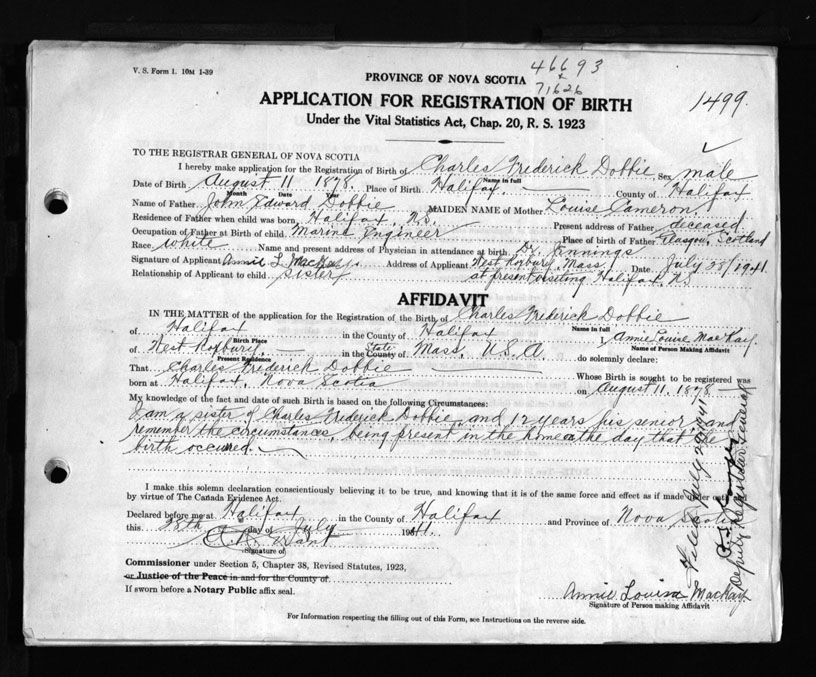 V. S. Form 1. 10M 1-39
46693
71626
PROVINCE OF NOVA SCOTIA
APPLICATION FOR REGISTRATION OF BIRTH
1499
Under the Vital Statistics Act, Chap. 20, R. S. 1923
TO THE REGISTRAR GENERAL OF NOVA SCOTIA
I hereby make application for the Registration of Birth of Charles Frederick Dobbie Sex male
Name in full
Date of Birth August 11 1878. Place of Birth Halifax County of Halifax
Month Date Year
Name of Father John Edward Dobbie MAIDEN NAME of Mother Louise Cameron
Residence of Father when child was born, Halifax, N.S. Present address of Father deceased
Occupation of Father at Birth of child Marine Engineer Place of birth of Father Glasgow, Scotland
Race white Name and present address of Physician in attendance at birth Dr. Jennings
Signature of Applicant Annie L MacKay Address of Applicant West Roxbury, Mass. Date July 28/1941.
Relationship of Applicant to child sister at present visiting Halifax, N.S.
AFFIDAVIT
IN THE MATTER of the application for the Registration of the Birth of Charles Frederick Dobbie
Name in Full
of Halifax in the County of Halifax I Annie Louise MacKay.
Birth Place Name of Person Making Affidavit
of West Roxbury in the County State of Mass. U.S.A. do solemnly declare:
Present Residence
That Charles Frederick Dobbie Whose Birth is sought to be registered was
born at Halifax, Nova Scotia on August 11, 1878
My knowledge of the fact and date of such Birth is based on the following Circumstances:
I am a sister of Charles Frederick Dobbie and 12 years his senior and
remember the circumstances, being present in the home on the day that the
birth occured.
I make this solemn declaration conscientiously believing it to be true, and knowing that it is of the same force and effect as if made under oath
by virtue of The Canada Evidence Act.
Declared before me at Halifax in the County of Halifax and Province of Nova Scotia
this 28th day of July 1941.
Signature of
Commissioner under Section 5, Chapter 38, Revised Statutes, 1923,
or Justice of the Peace in and for the County of
If sworn before a Notary Public affix seal.
Annie Louise MacKay
Signature of Person making Affidavit
For Information respecting the filling out of this Form, see Instructions on the reverse side.
Filed July 29/41
Deputy Registrar General